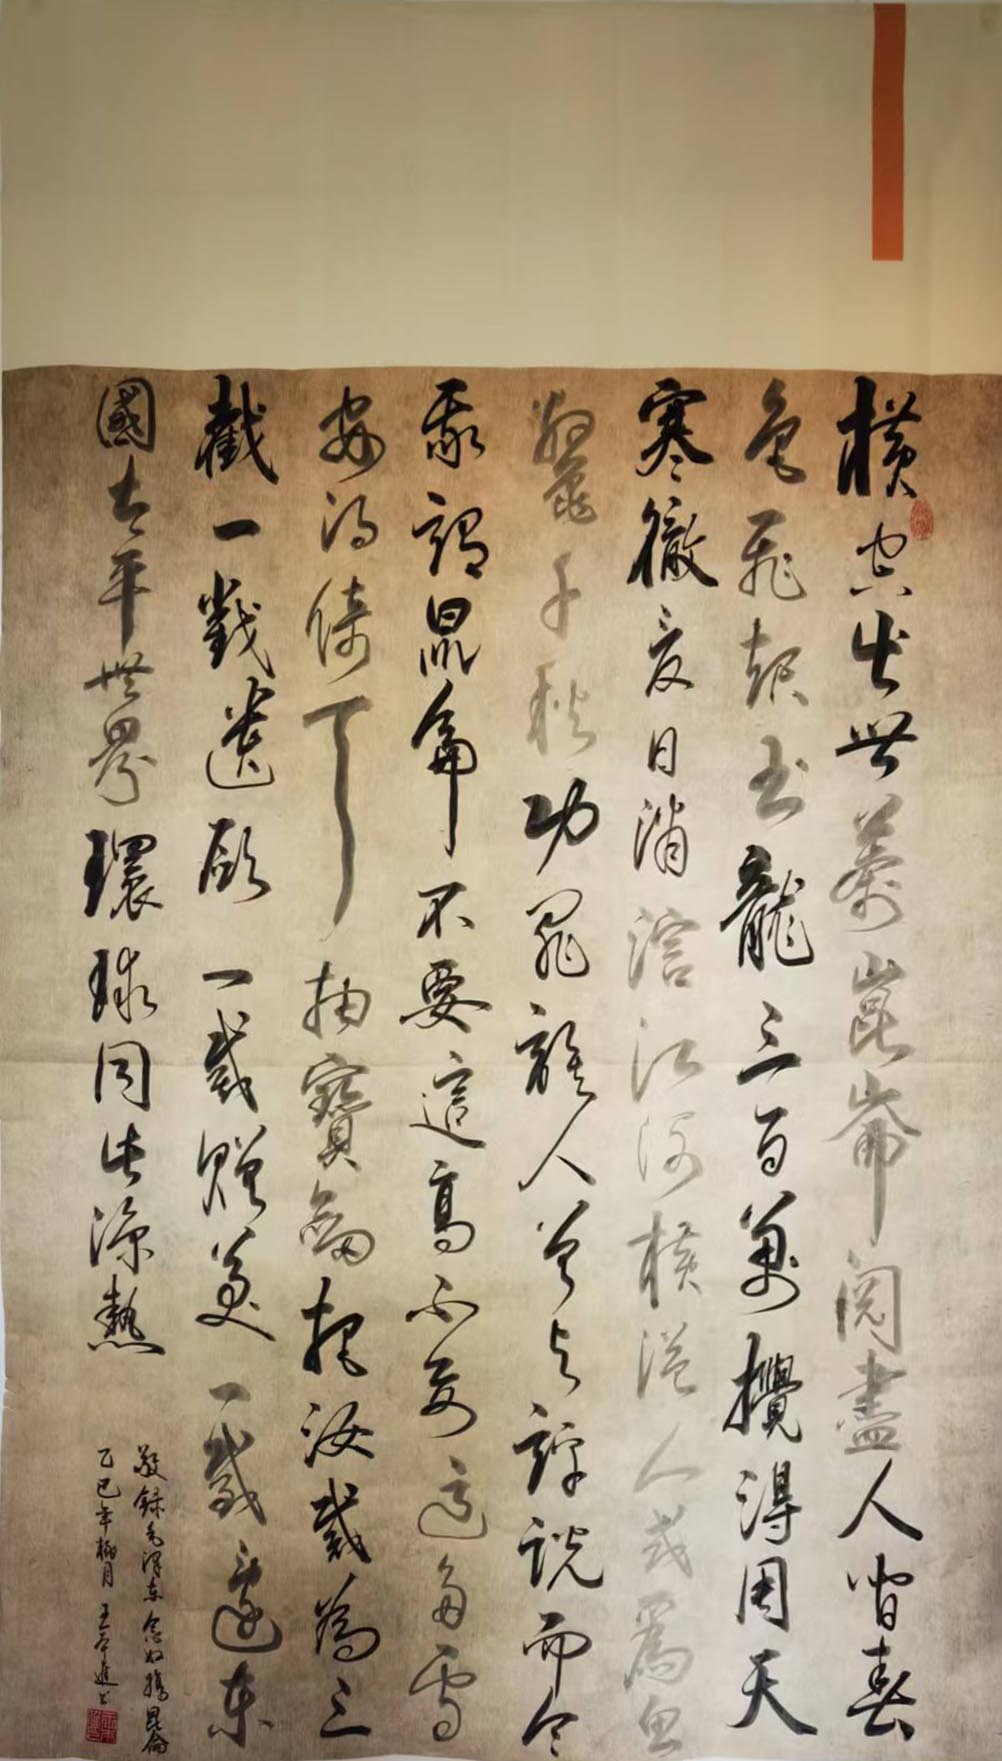 橫空出世莽崑崙閱盡人間春
色飛起玉龍三百萬攪得周天
寒徹夏日消溶江河橫溢人或為魚
鱉千秋功罪誰人曾與評說而今
我謂昆侖不要這高不要這多雪
安得倚天抽寶劍把汝裁為三
截一截遺歐一截贈美一截還東
國太平世界環球同此涼熱
敬錄毛澤東念奴嬌昆侖
乙巳年月 王進書